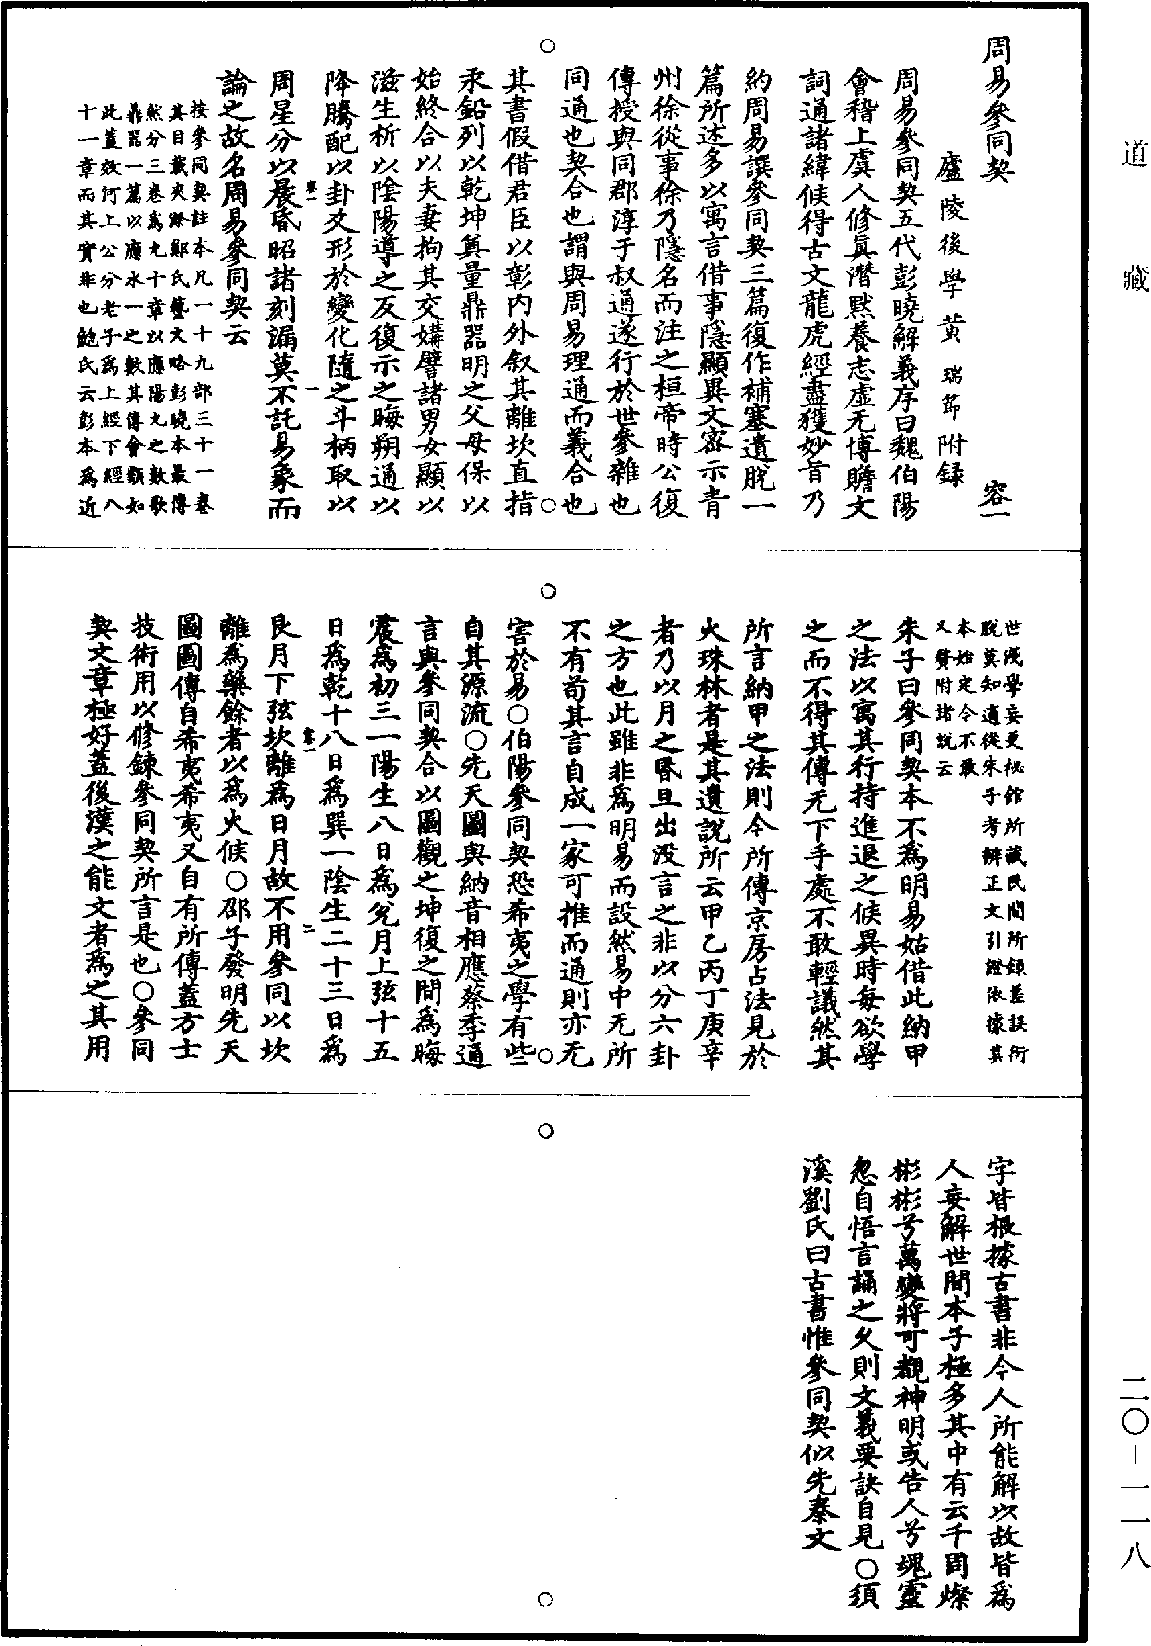 道藏
周易參同契 容一
廬陵後學黃瑞節附録
周易參同契五代彭曉解義序曰魏伯陽
會稽上虞人修真潛默養志虛无博贍文
詞通諸緯候得古文龍虎經盡獲妙旨乃
約周易譔參同契三篇復作補塞遺脫一
篇所述多以寓言借事隱顯異文密示青
州徐從事徐乃隱名而注之桓帝時公復
傳授與同郡淳于叔通遂行於世參雜也
同通也契合也謂與周易理通而義合也
其書假借君臣以彰內外叙其離坎直指
汞鉛列以乾坤奠量鼎器明之父母保以
始終合以夫妻拘其交媾譬諸男女顯以
滋生析以陰陽導之反復示之晦朔通以
降騰配以卦爻形於變化隨之斗柄取以
周星分以晨昏昭諸刻漏莫不託易象而
論之故名周易參同契云
按參同契註本凡一十九部三十一卷
其目載夾漈鄭氏藝文略彭曉本最傳
然分三卷為九十章以應陽九之數歌
鼎器一篇以應水一之數其傅會類如
此蓋效河上公分老子為上經下經八
十一章而其實非也鮑氏云彭本為近
世淺學妄更秘館所藏民間所録差誤衍
脫莫知適從朱子考辨正文引證依據其
本始定今不敢
又贅附諸說云
朱子曰參同契本不為明易姑借此納甲
之法以寓其行持進退之候異時每欲學
之而不得其傳无下手處不敢輕議然其
所言納甲之法則今所傳京房占法見於
火珠林者是其遺說所云甲乙丙丁庚辛
者乃以月之昏旦出沒言之非以分六卦
之方也此雖非為明易而設然易中无所
不有苟其言自成一家可推而通則亦无
害於易〇伯陽參同契恐希夷之學有些
自其源流〇先天圖與納音相應蔡季通
言與參同契合以圖觀之坤復之間為晦
震為初三一陽生八日為兌月上弦十五
日為乾十八日為巽一陰生二十三日為
艮月下弦坎離為日月故不用參同以坎
離為藥餘者以為火候〇邵子發明先天
圖圖傳自希夷希夷又自有所傳蓋方士
技術用以修鍊參同契所言是也〇參同
契文章極好蓋後漢之能文者為之其用
字皆根據古書非今人所能解以故皆為
人妄解世間本子極多其中有云千周燦
彬彬兮萬變將可覩神明或告人兮魂靈
忽自悟言誦之久則文義要訣自見〇須
溪劉氏曰古書惟參同契似先秦文
二〇—一一八